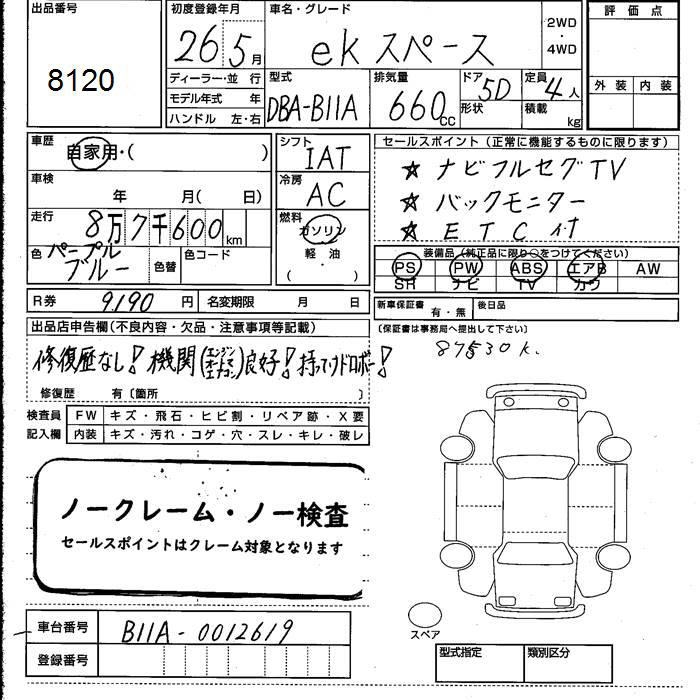 出品番号
8120
初度登録年月
26 5月
車名・グレード
ek スペース
2WD
・
4WD
評価点
外装 内装
ディーラー・並行
モデル年式 年
ハンドル 左・右
型式
DBA-B11A
排気量
660cc
ドア
形状
5D
定員
積載
4人
kg
車歴
自家用・( )
車検
年 月( 日)
走行
8万7千600km
色
パープル
ブルー
色替
色コード
シフト
IAT
冷房
AC
燃料
ガソリン
軽油
( ・ )
セールスポイント(正常に機能するものに限ります)
☆ ナビフルセグTV
☆ バックモニター
☆ ETC付
装備品(純正品に限り○をつけてください)
PS PW ABS エアB AW
SR ナビ TV カワ
R券 9190円
名変期限 月 日
新車保証書 有・無
後日品
(保証書は事務局へ提出して下さい)
87530K.
出品店申告欄(不良内容・欠品・注意事項等記載)
修復歴なし! 機関(エンジン オートマ エアコン)良好! 持ってけドロボー!
修復歴 有〔箇所 〕
検査員
記入欄
FW キズ・飛石・ヒビ割・リペア跡・X要
内装 キズ・汚れ・コゲ・穴・スレ・キレ・破レ
ノークレーム・ノー検査
セールスポイントはクレーム対象となります
車台番号 B11A-0012619
登録番号
スペア
型式指定 類別区分